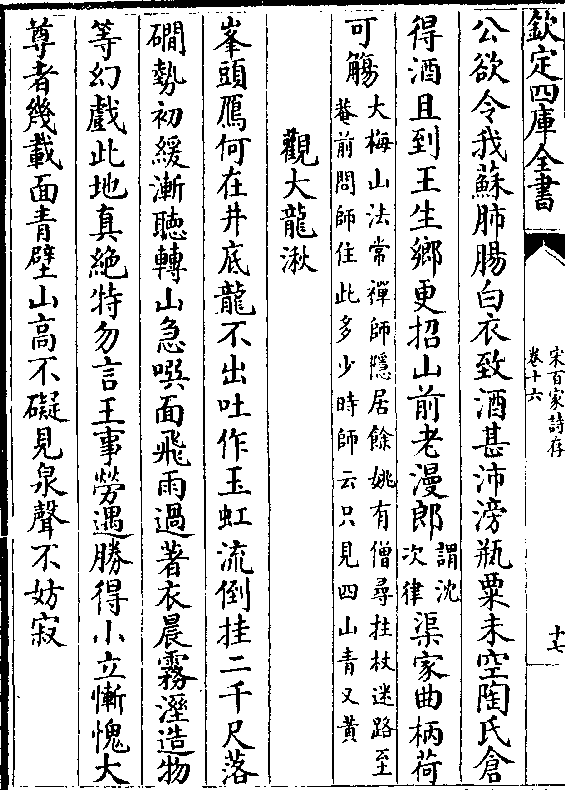 欽定四庫全書
宋百家詩存
卷十六
十七
公欲令我蘇肺腸白衣致酒甚沛滂瓶粟未空陶氏倉
得酒且到王生鄉更招山前老漫郎謂沈次律渠家曲柄荷
可觴大梅山法常禪師隱居餘姚有僧尋拄杖迷路至
菴前問師住此多少時師云只見四山青又黄
觀大龍湫
峯頭鴈何在井底龍不出吐作玉虹流倒挂二千尺落
磵勢初緩漸聽轉山急噀面飛雨過著衣晨霧溼造物
等幻戲此地真絶特勿言王事勞遇勝得小立慚愧大
尊者幾載面青壁山高不礙見泉聲不妨寂